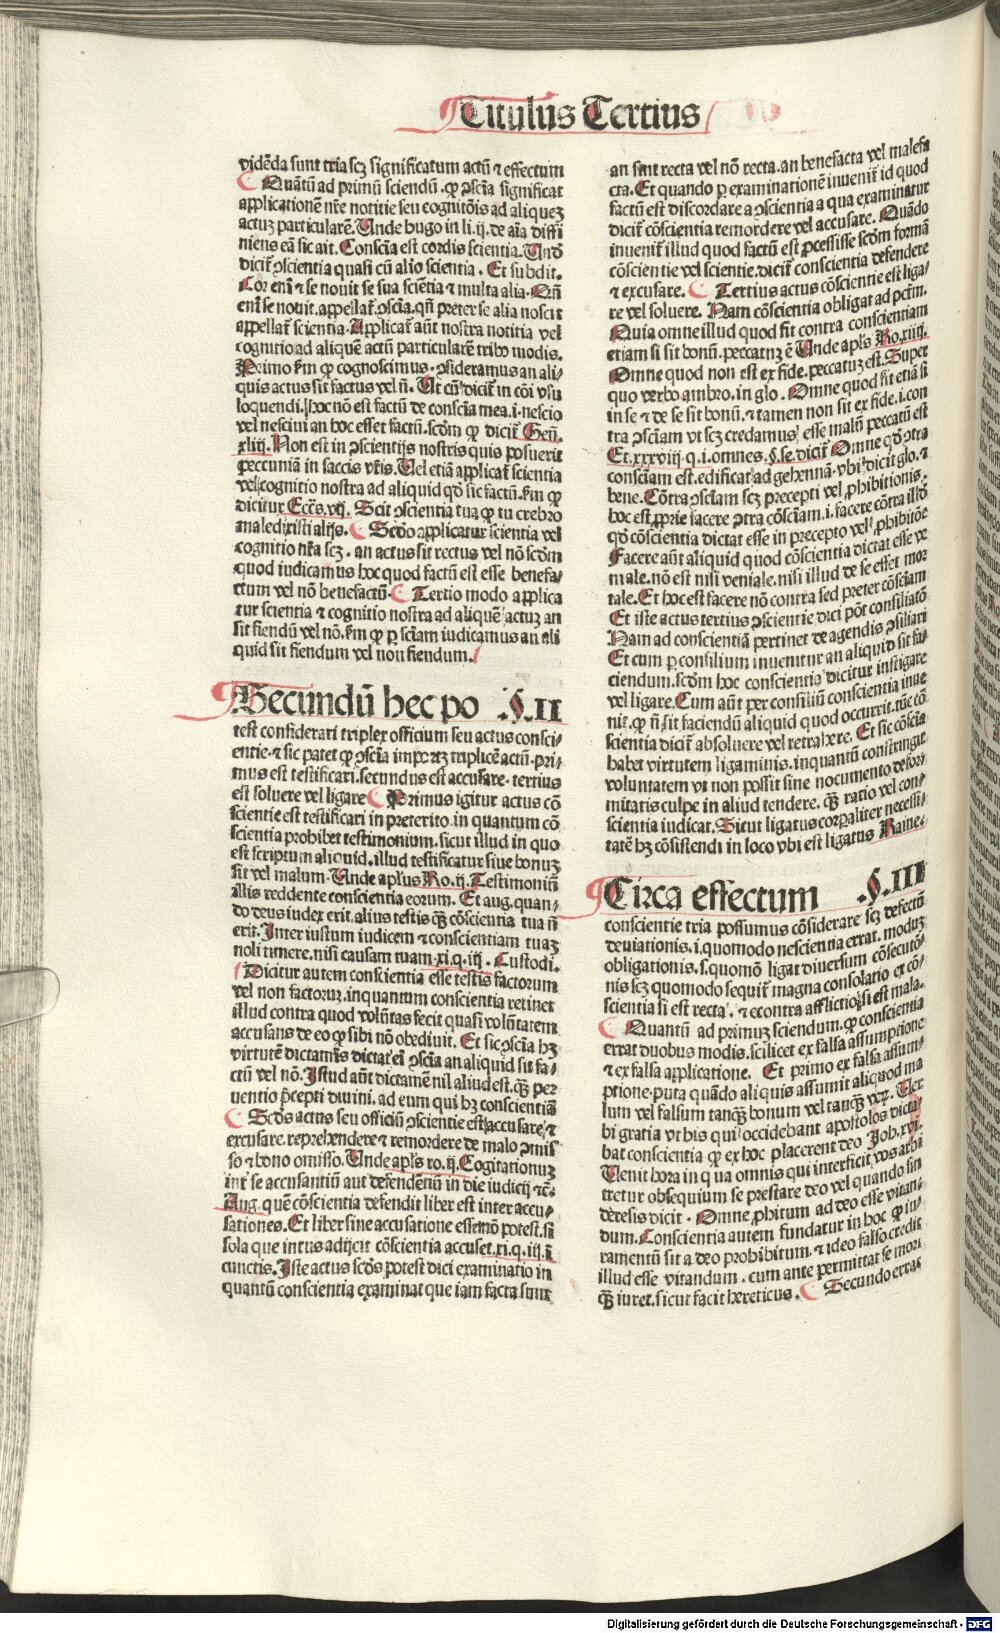 Titulus Tertius
vidēda sunt tria scꝫ significatum actū ⁊ effectum
Quātū ad primū sciendū. ꝙ ↄsciā significat
applicationē nr̄e notitie seu cognitōis ad aliqueꝫ
actuꝫ particularē. Unde hugo in li. ij. de aīa diffi
niens eā sic ait. Consciā est cordis scientia. Undꝰ
dicit̄ ↄscientia quasi cū alio scientia. Et subdit.
Cor eni ⁊ se nouit se sua sciētia ⁊ multa alia. Qn̄
eni se nouit. appellat̄ ↄsciā. qn̄ preter se alia noscit
appellat̄ scientia. Applicat̄ aūt nostra notitia vel
cognitio ad aliquē actū particularē tribꝰ modis.
Primo s̄m ꝙ cognoscimus. ↄsideramus an ali/
quis actus sit factus vel n̄. Ut cū dicit̄ in cōi vsu
loquendi. hoc nō est factū de consciā mea. i. nescio
vel nesciui an hoc esset factū. scdm ꝙ dicit̄ Geñ.
xliij. Non est in ↄscientijs nostris quis posuerit
peccuniā in saccis vr̄is. Uel etiā applicat̄ scientia
vel cognitio nostra ad aliquid qd̄ sic factū. s̄m ꝙ
dicitur Ecc̄s. vij. Scit ↄscientia tua ꝙ tu crebro
maledixisti alijs. Scd̄o applicatur scientia vel
cognitio nr̄a scꝫ. an actus sit rectus vel nō scdm
quod iudicamus hoc quod factū est esse benefa/
ctum vel nō benefactū. Tertio modo applica
tur scientia ⁊ cognitio nostra ad aliquē actuꝫ an
sit fiendū vel nō. s̄m ꝙ ꝑ sciam iudicamus an ali
quid sit fiendum vel non fiendum.
Secundū hec po .§.II
test considerari triplex officium seu actus consci/
entie. ⁊ sic patet ꝙ ↄsciā imporꝫ triplicē actū. pri/
mus est testificari. secundus est accusare. tertius
est soluere vel ligare Primus igitur actus cō
scientie est testificari in preterito. in quantum cō
scientia prohibet testimonium. sicut illud in quo
est scriptum aliquid. illud testificatur siue bonuꝫ
sit vel malum. Unde apl̄us Ro. ij. Testimoniū
illis reddente conscientia eorum. Et aug. quan/
do deus iudex erit. alius testis qꝫ cōscientia tua n̄
erit. Inter iustum iudicem ⁊ conscientiam tuaꝫ
noli timere. nisi causam tuam. xi. q. iij. Custodi.
Dicitur autem conscientia esse testis factorum
vel non factoruꝫ. inquantum conscientia retinet
illud contra quod volūtas fecit quasi volūtatem
accusans de eo ꝙ sibi nō obediuit. Et sic ↄsciā hꝫ
virtutē dictamīs dictat eī ↄsciā an aliquid sit fa/
ctū vel nō. Istud aūt dictamē nil aliud est. qꝫ per
uentio p̄cepti diuini. ad eum qui hꝫ conscientiā
Scd̄s actus seu officiū ↄscientie est accusare ⁊
excusare. reprehendere ⁊ remordere de malo ↄmis
so ⁊ bono omisso. Unde apl̄s ro. ij. Cogitationuꝫ
int̄ se accusantiū aut defendētiū in die iudicij ⁊c̄.
Aug. quē cōscientia defendit liber est inter accu/
sationes. Et liber sine accusatione esse nō potest. si
sola que intus adijcit cōscientia accuset. xi. q. iij. ī
cunctis. Iste actus scd̄s potest dici examinatio in
quantū conscientia examinat que iam facta sunt
an sint recta vel nō recta. an benefacta vel malefa
cta. Et quando ꝑ examinationē inuenit̄ id quod
factū est discordare a ↄscientia a qua examinatur
dicit̄ cōscientia remordere vel accusare. Quādo
inuenit̄ illud quod factū est ꝓcessisse scdm formā
cōscientie vel scientie. dicit̄ conscientia defendere
⁊ excusare. Tertius actus cōscientie est liga/
re vel soluere. Nam cōscientia obligat ad pctm̄.
Quia omne illud quod fit contra conscientiam
etiam si sit bonū. peccatuꝫ ē Unde apl̄s Ro. xiiij.
Omne quod non est ex fide. peccatuꝫ est. Super
quo verbo ambro. in glo. Omne quod fit etiā si
in se ⁊ de se sit bonū. ⁊ tamen non sit ex fide. i. con
tra ↄsciam vt scꝫ credamus esse malū peccatū est
Et. xxxviij. q. i. omnes. §. se. dicit̄ Omne qd̄ ↄtra
consciam est. edificat ad gehennā. vbi dicit glo. ⁊
bene. Cōtra ↄsciam scꝫ precepti vel ꝓhibitionis.
hoc est ꝓprie facere ↄtra cōsciam. i. facere cōtra illd̄
qd̄ cōscientia dictat esse in precepto vel ꝓhibitōe
Facere aūt aliquid quod cōscientia dictat esse ve
male. nō est nisi veniale. nisi illud de se esset mor
tale. Et hoc est facere nō contra sed preter cōsciam
Et iste actus tertius ↄscientie dici pōt consiliatō
Nam ad conscientiā pertinet de agendis ↄsiliari
Et cum ꝑ consilium inuenitur an aliquid sit fa/
ciendum. scdm hoc conscientia dicitur instigare
vel ligare. Cum aūt per consiliū conscientia inue
nit. ꝙ n̄ sit faciendū aliquid quod occurrit. tūc cō
scientia dicit̄ absoluere vel retrahere. Et sic cōscia
habet virtutem ligaminis. inquantū constringit
voluntatem vt non possit sine nocumento defor/
mitatis culpe in aliud tendere. qꝫ ratio vel con/
scientia iudicat. Sicut ligatus corꝑaliter necessi/
tatē hꝫ cōsistendi in loco vbi est ligatus Raine.
Circa effectum .§.III
conscientie tria possumus cōsiderare scꝫ defectū
deuiationis. i. quomodo nescientia errat. moduꝫ
obligationis. s. quomō ligat diuersum cōsecutō/
nis scꝫ quomodo sequit̄ magna consolatio ex cō/
scientia si est recta. ⁊ econtra afflictio si est mala.
Quantū ad primuꝫ sciendum. ꝙ conscientia
errat duobus modis. scilicet ex falsa assumptione
⁊ ex falsa applicatione. Et primo ex falsa assum/
ptione. puta quādo aliquis assumit aliquod ma
lum vel falsum tanqꝫ bonum vel tanqꝫ veꝝ. Uer
bi gratia vt his qui occidebant apostolos dicta/
bat conscientia ꝙ ex hoc placerent deo Joh. xvi.
Uenit hora in qua omnis qui interficit vos arbi
tretur obsequium se prestare deo vel quando sin
deresis dicit. Omne ꝓhibitum ad deo esse vitan/
dum. Conscientia autem fundatur in hoc ꝙ iu/
ramentū sit a deo prohibitum. ⁊ ideo falso credit
illud esse vitandum. cum ante permittat se mori
qꝫ iuret. sicut facit hereticus. Secundo errat
Digitalisierung gefördert durch die Deutsche Forschungsgemeinschaft - DFG